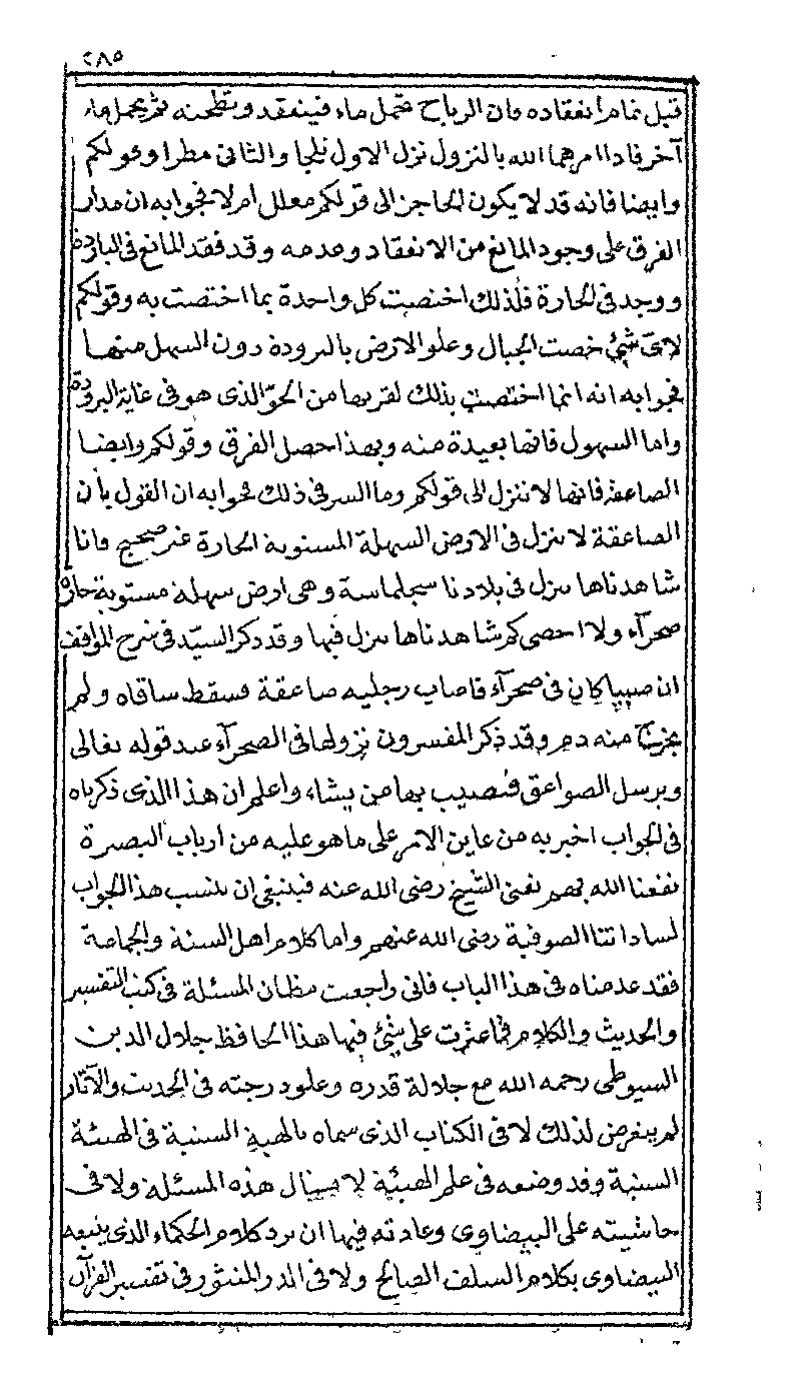 ٢٨٥
قبل تمام انعقاده فان الرياح تحمل ماء فينعقد وتطحنه ثم يحمل ماء
آخر فاذا امرهما الله بالنزول نزل الاول ثلجا والثانى مطرا وقولكم
وايضا فانه قد لا يكون الحاجز الى قولكم معلل ام لا فجوابه ان مدار
الفرق على وجود المانع من الانعقاد وعدمه وقد فقد المانع فى الباردة
ووجد فى الحارة فلذلك اختصت كل واحدة بما اختصت به وقولكم
لاى شئ خصت الجبال وعلو الارض بالبرودة دون السهل منها
فجوابه انه انما اختصت بذلك لقربها من الجو الذى هو فى غاية البرودة
واما السهول فانها بعيدة منه وبهذا حصل الفرق وقولكم وايضا
الصاعقة فانها لا تنزل الى قولكم وما السر فى ذلك فجوابه ان القول بأن
الصاعقة لا تنزل فى الارض السهلة المستوية الحارة غير صحيح فانا
شاهدناها تنزل فى بلادنا سجلماسة وهى ارض سهلة مستوية حارة
صحرآء ولا احصى كم شاهدناها تنزل فيها وقد ذكر السيد فى شرح المواقف
ان صبيا كان فى صحرآء فاصاب رجليه صاعقة فسقط ساقاه ولم
يخرج منه دم وقد ذكر المفسرون نزولها فى الصحرآء عند قوله تعالى
ويرسل الصواعق فيصيب بها من يشاء واعلم ان هذا الذى ذكرناه
فى الجواب اخبر به من عاين الامر على ما هو عليه من ارباب البصيرة
نفعنا الله بهم نعنى الشيخ رضى الله عنه فينبغى ان ينسب هذا الجواب
لساداتنا الصوفية رضى الله عنهم واما كلام اهل السنة والجماعة
فقد عدمناه فى هذا الباب فانى راجعت مظان المسئلة فى كتب التفسير
والحديث والكلام فما عثرت على شئ فيها هذا الحافظ جلال الدين
السيوطى رحمه الله مع جلالة قدره وعلو درجته فى الحديث والآثار
لم يتعرض لذلك لا فى الكتاب الذى سماه بالهيئة السنية فى الهيئة
السنية وقد وضعه فى علم الهيئة لامثال هذه المسئلة ولا فى
حاشيته على البيضاوى وعادته فيها ان يرد كلام الحكماء الذى يتبعه
البيضاوى بكلام السلف الصالح ولا فى الدر المنثور فى تفسير القرآن